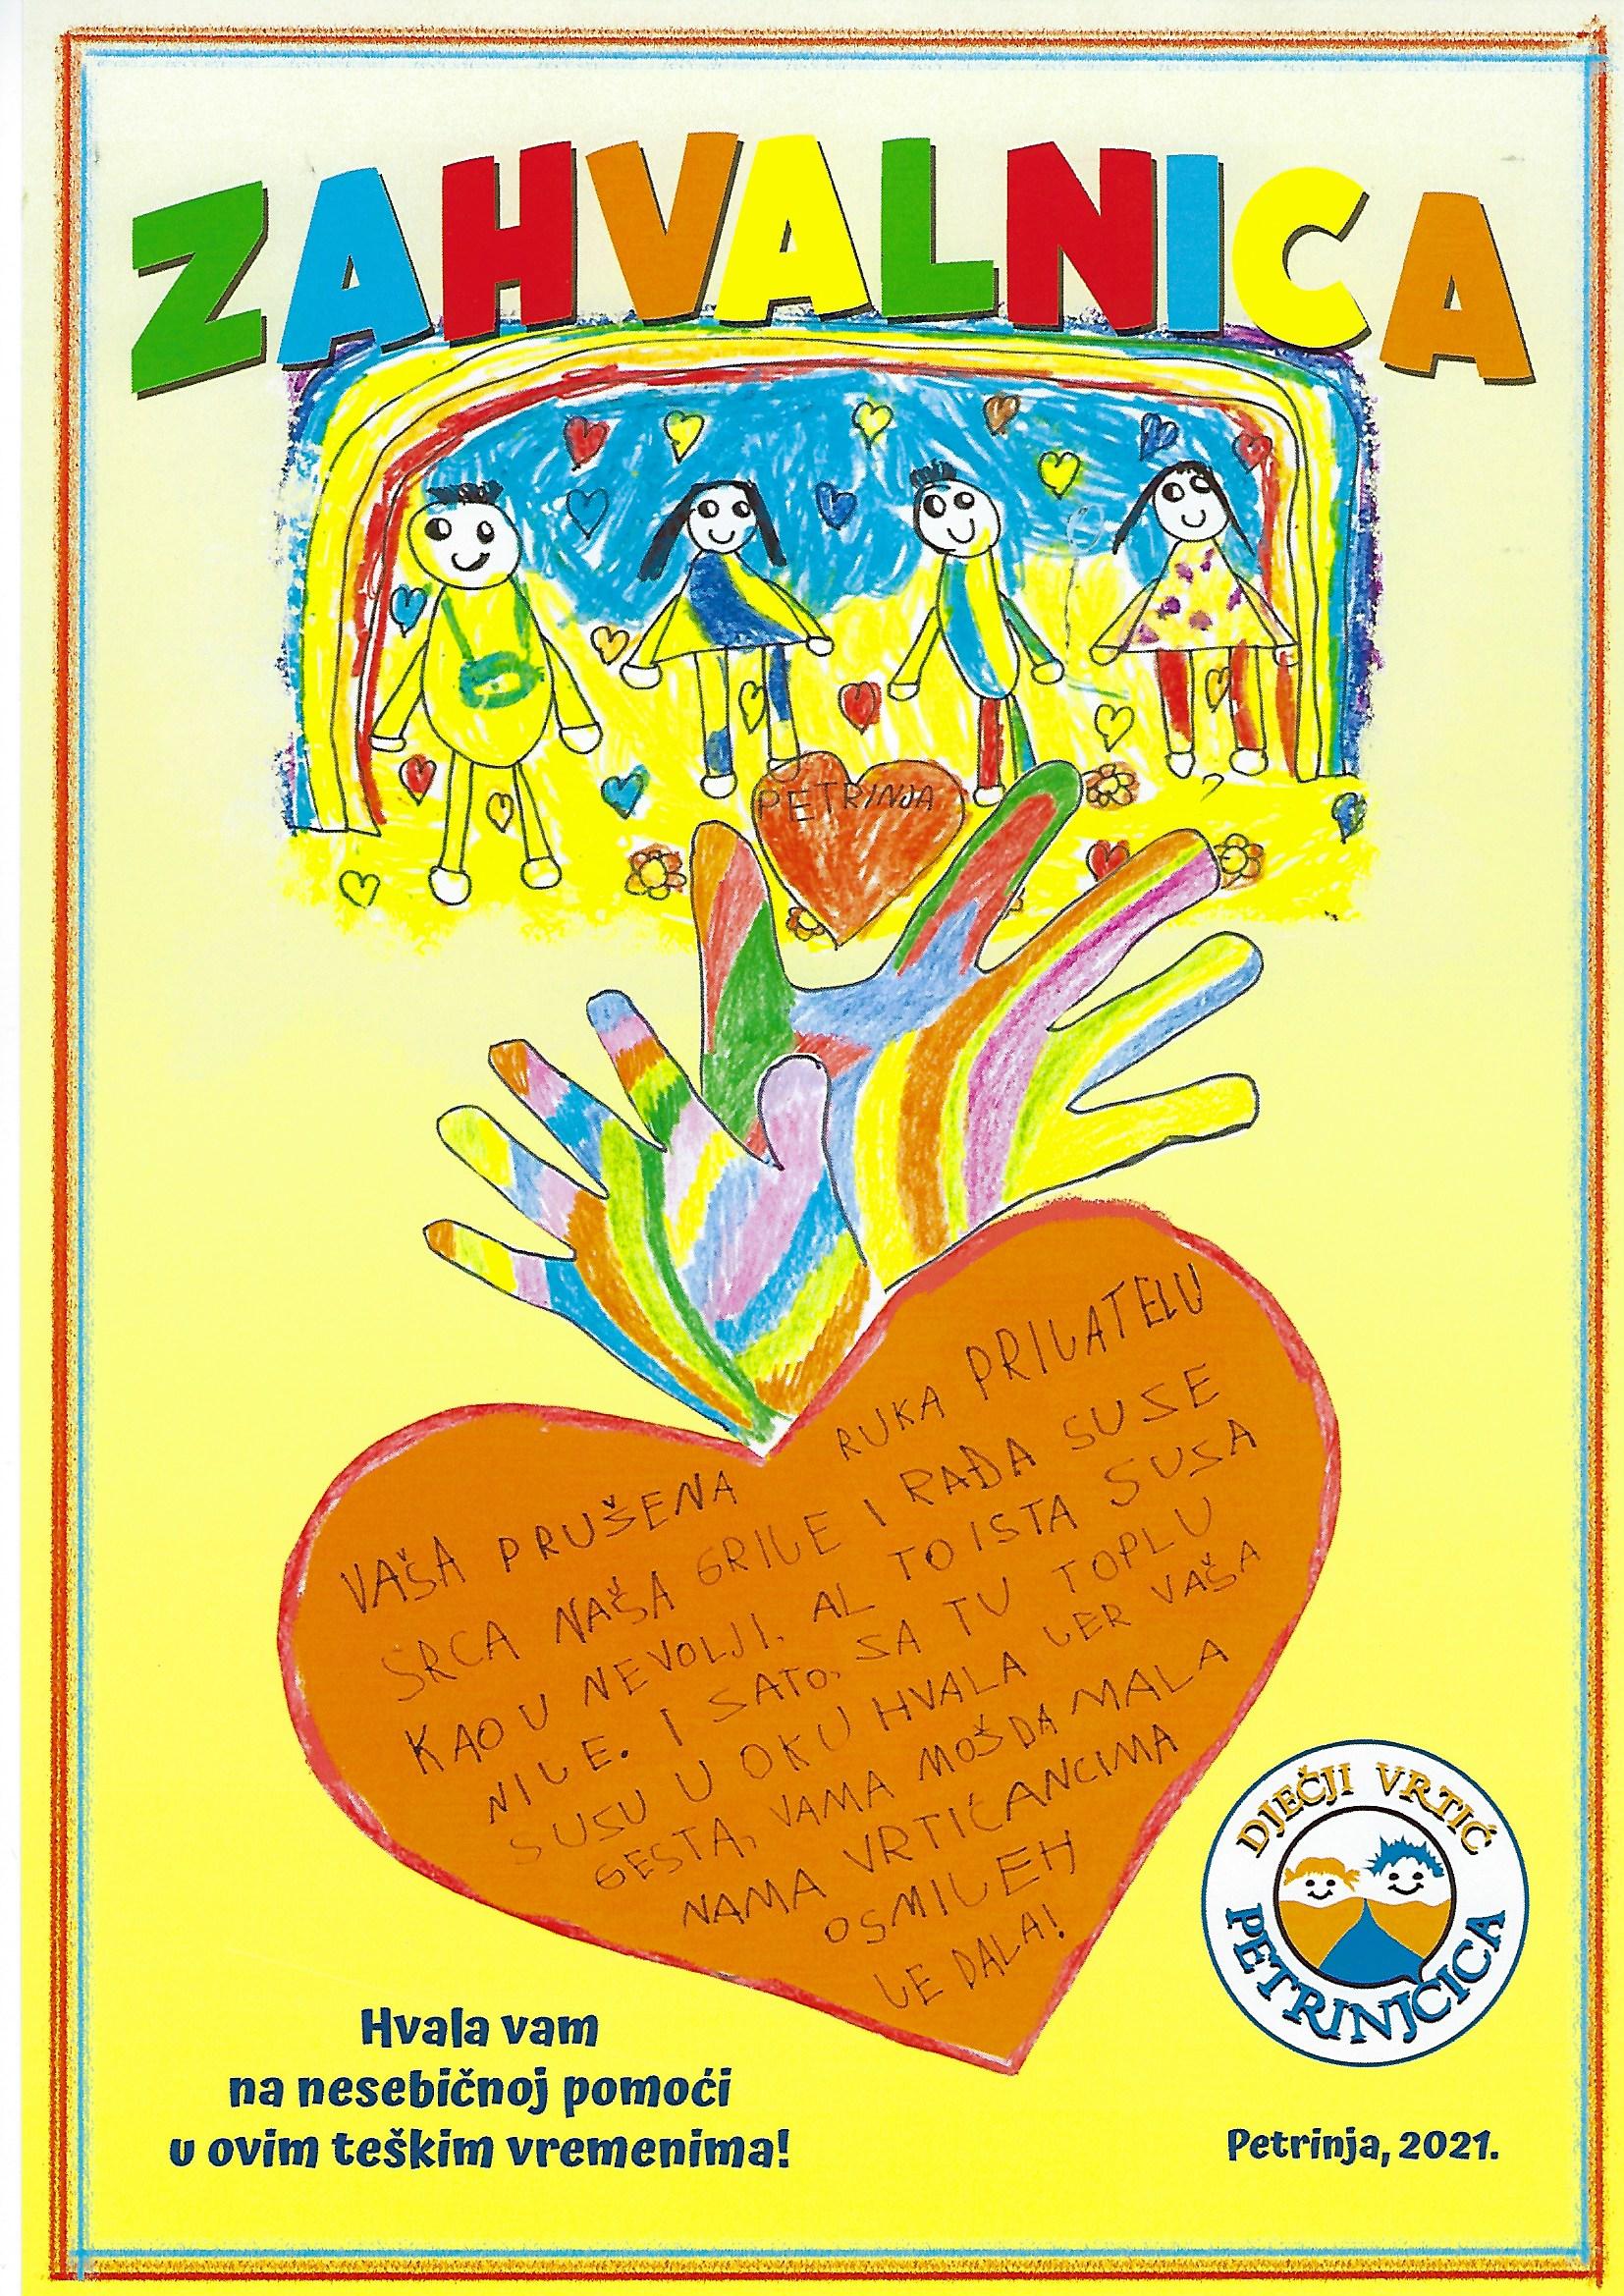 ZAHVALNICA
PETRINJA
VAŠA PRUŠENA RUKA PRIJATELJU
SRCA NAŠA GRIJE I RAĐA SUZE
KAO U NEVOLJI. AL TO ISTA SUZA
NIJE. I ZATO, SA TU TOPLU
SUZU U OKU HVALA JER VAŠA
GESTA, VAMA MOŠDA MALA
NAMA VRTIĆANCIMA
OSMIJEH
JE DALA!
DJEČJI VRTIĆ
PETRINJČICA
Hvala vam
na nesebičnoj pomoći
u ovim teškim vremenima!
Petrinja, 2021.